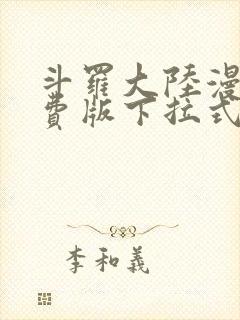 斗羅大陸漫
費版下拉式
李和義